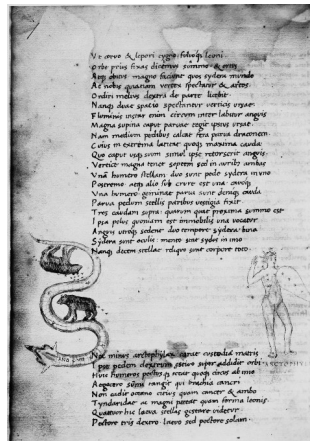 Ut corvo & lepori cygno fulvoq; leoni
Orbe prius fixas dicemus summo &
Atq; obitus magno faciunt quos sydera mundo
Ac nobis quoniam vertex spectatur & arctos
Ordiri melius dextra de parte licebit
Nanq; deae spacio spectantur verticis ursae
Fluminis instar enim circum inter labitur anguis
Magna supina caput parvae tegit ipsius ursae
Nam medium pedibus calcat fera parva draconem
Cuius in extrema latitat quoq; maxima cauda
Quo caput usq; suum simul ipse retorserit anguis
Vertice magna tenet septem sed in auribus ambas
Una humero stellam duo sunt pede sydera in uno
Postremo atq; alio sub crure est una
Una humero geminae parva sunt deniq; cauda
Parva pedum stellis paribus vestigia fixit
Tres caudam supra quarum quae proxima summo est
Ipsa polus quoniam est immobilis una vocatur
Anguis utroq; sedent duo tempore sydera bina
Sydera sunt oculis mento stat sydus in imo
Nanq; decem stellae reliquo sunt corpore toto
Nec minus arctophylax caret custodia matris
Ipse pedem dextrum supra addidit orbi
Huic humeros pectusq; secat quoq; circus ab imo
Aegocero summum tangit qui brachia cancri
Non audit oceano citius quam cancer & ambo
Tyndaridae ac magni pariter quam forma leonis
Quatuor hic laeva stellas gestare videtur
Pectore tris dextro laevo sed pectore solam